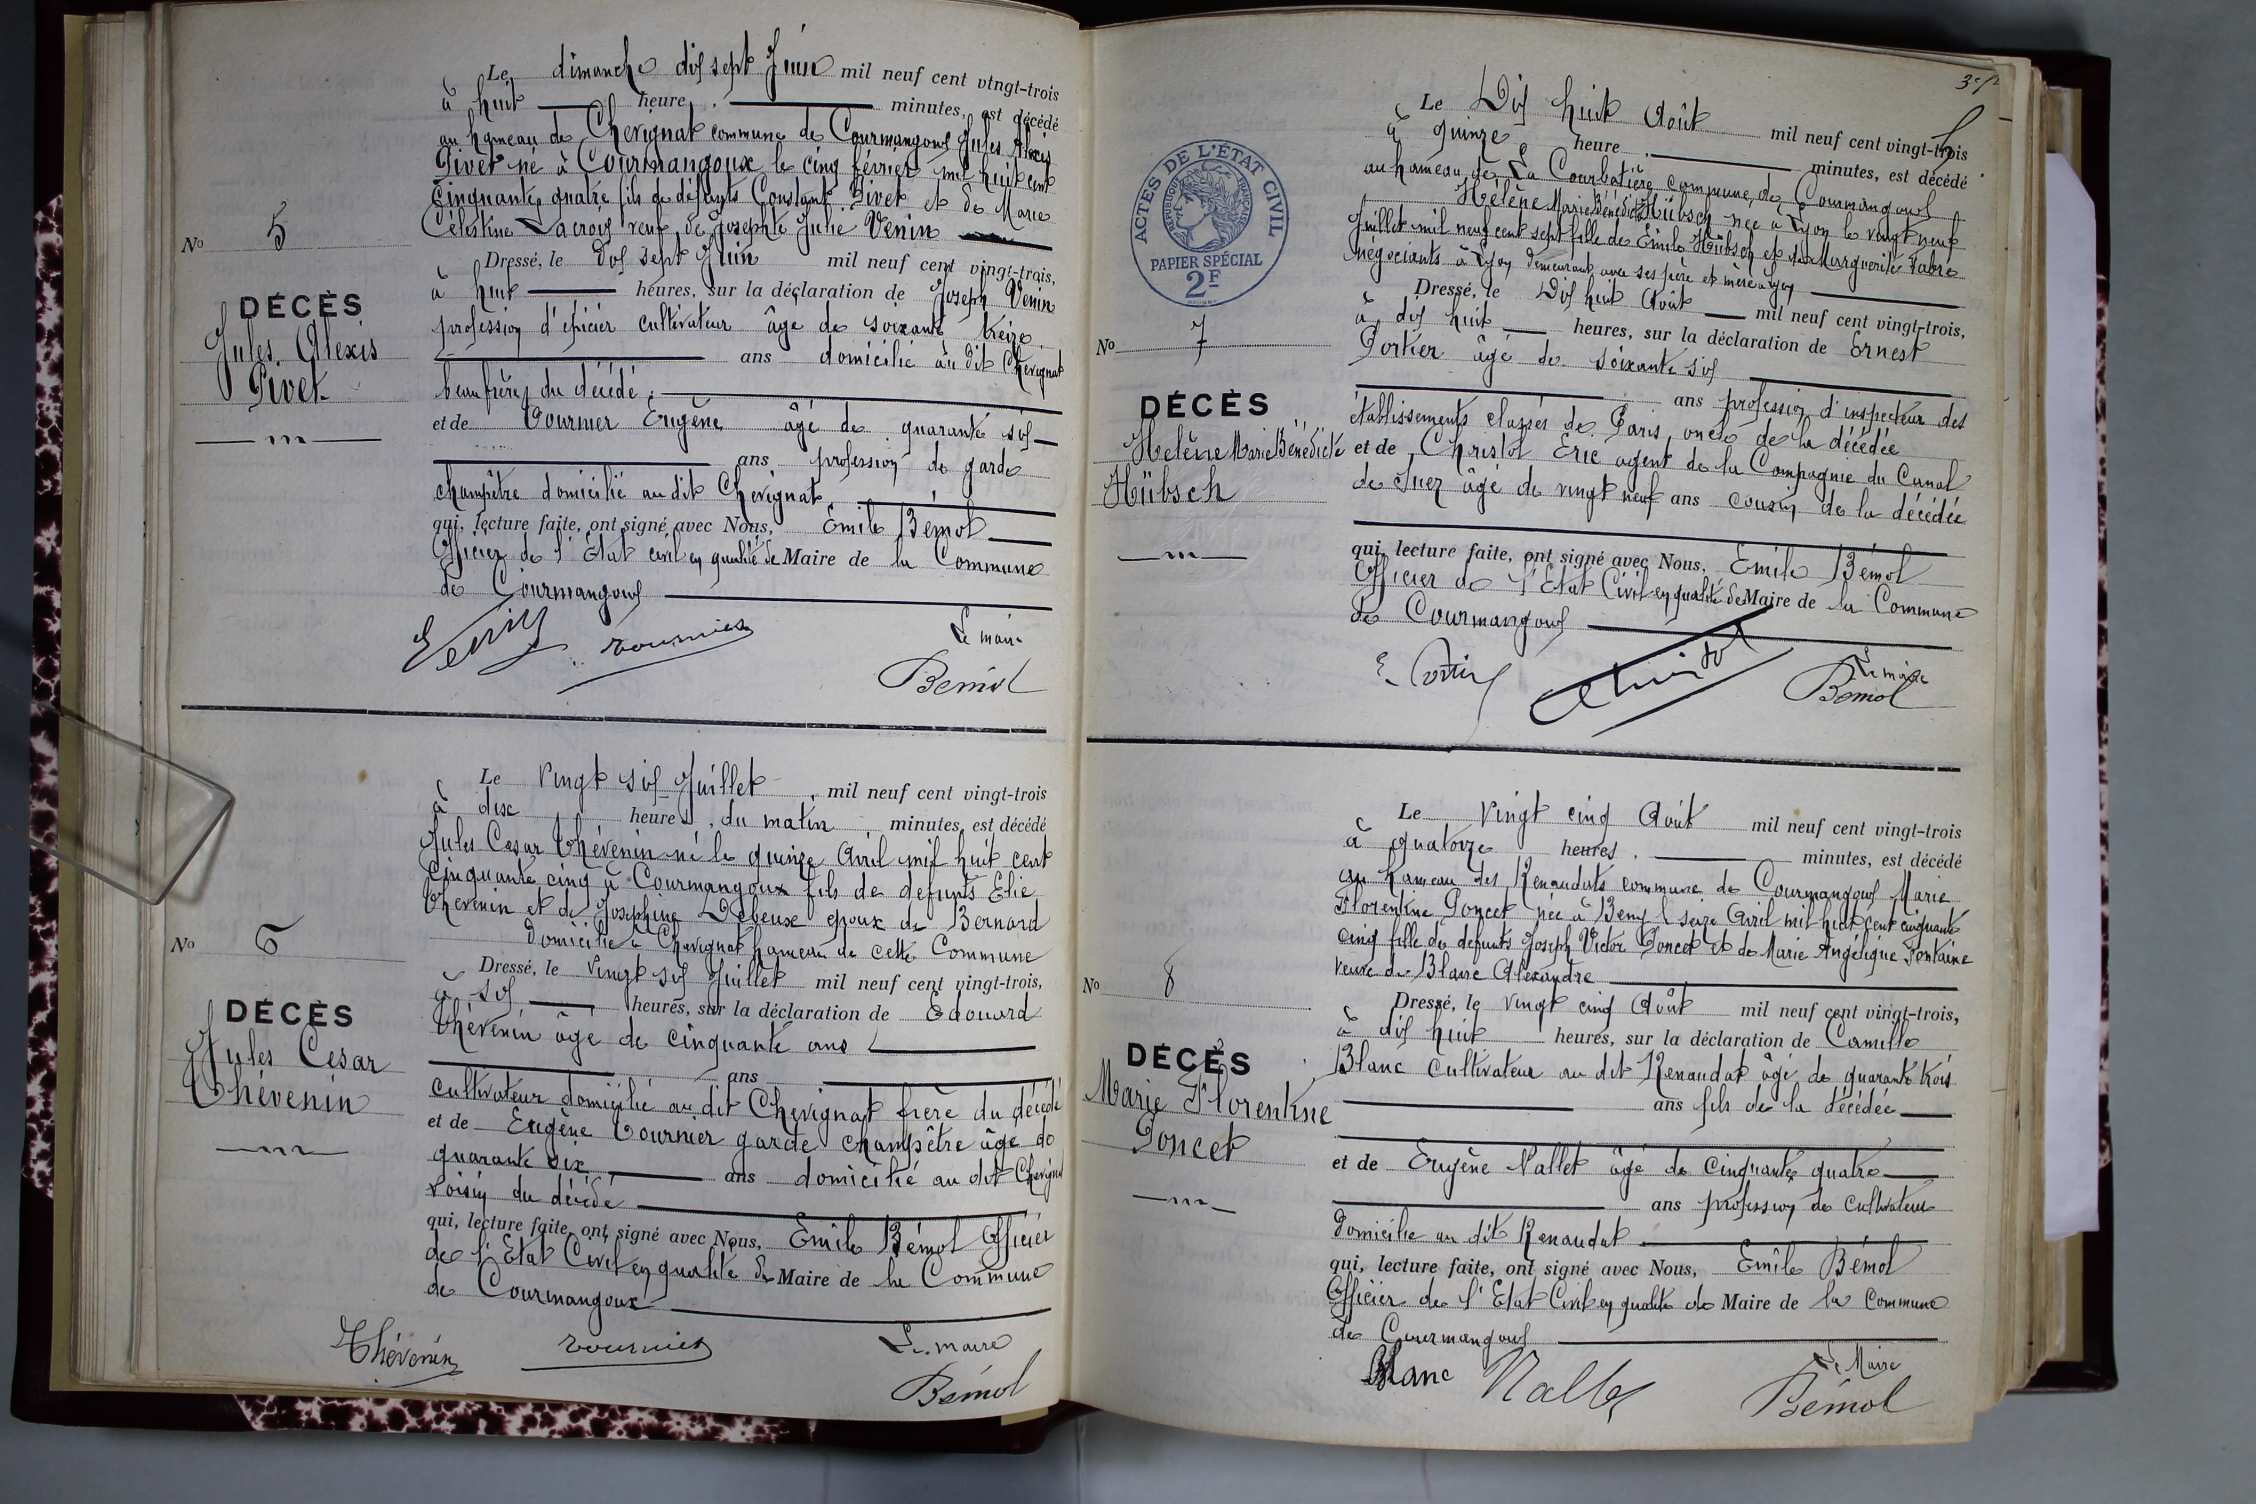 Le dimanche dix sept Juin mil neuf cent vingt-trois
à huit heure minutes, est décédé
au hameau de Chevignat commune de Courmangoux Jules Alexis
Pivet né à Courmangoux le cinq février mil huit cent
Cinquante quatre fils de défunts Constant Pivet et de Marie
Célestine Lacroix veuf de Josephte Julie Venin
No 5
DÉCÈS
Jules Alexis
Pivet
Dressé, le Dix sept Juin mil neuf cent vingt-trois,
à huit heures, sur la déclaration de Joseph Venin
profession d'épicier cultivateur âgé de soixante treize
ans domicilié au dit Chevignat
beau frère du décédé
et de Tournier Eugène âgé de quarante six
ans profession de garde
champêtre domicilié au dit Chevignat
qui, lecture faite, ont signé avec Nous, Emile Bémol
Officier de l'Etat civil en qualité de Maire de la Commune
de Courmangoux
Tournier
Le maire
Bémol
Le Vingt six Juillet mil neuf cent vingt-trois
à dix heures du matin minutes, est décédé
Jules Cesar Thévenin né le quinze Avril mil huit cent
Cinquante cinq à Courmangoux fils de defunts Elie
Thevenin et de Josephine Debeux epoux de Bernard
domicilié à Chevignat hameau de cette Commune
No 6
DÉCÈS
Jules Cesar
Thévenin
Dressé, le Vingt six Juillet mil neuf cent vingt-trois,
à six heures, sur la déclaration de Edouard
Thévenin âgé de cinquante ans
ans
cultivateur domicilié au dit Chevignat frère du décédé
et de Eugène Tournier garde champêtre âgé de
quarante six ans domicilié au dit Chevignat
voisin du décédé
qui, lecture faite, ont signé avec Nous, Emile Bémol Officier
de l'Etat Civil en qualité de Maire de la Commune
de Courmangoux
Thévenin
Tournier
Le maire
Bémol
Le Dix huit Août mil neuf cent vingt-trois
à quinze heure minutes, est décédé
au hameau de La Courbatière commune de Courmangoux
Hélène Marie Bénédicte Hübsch née à Lyon le vingt neuf
Juillet mil neuf cent sept fille de Emile Hübsch et de Marguerite Fabre
négociants à Lyon demeurant avec ses père et mère à Lyon
ACTES DE L'ÉTAT CIVIL
RÉPUBLIQUE FRANÇAISE
PAPIER SPÉCIAL
2F
No 7
DÉCÈS
Hélène Marie Bénédicte
Hübsch
Dressé, le Dix huit Août mil neuf cent vingt-trois,
à dix huit heures, sur la déclaration de Ernest
Portier âgé de soixante six
ans profession d'inspecteur des
établissements classés de Paris, oncle de la décédée
et de Christol Eric agent de la Compagnie du Canal
de Suez âgé de vingt neuf ans cousin de la décédée
qui, lecture faite, ont signé avec Nous, Emile Bémol
Officier de l'Etat Civil en qualité de Maire de la Commune
de Courmangoux
E. Portier
Christol
Le maire
Bémol
Le Vingt cinq Août mil neuf cent vingt-trois
à quatorze heures minutes, est décédé
au hameau des Renaudats commune de Courmangoux Marie
Florentine Poncet née à Beny l seize Avril mil huit cent cinquante
cinq fille de defunts Joseph Victor Poncet et de Marie Angélique Fontaine
veuve de Blanc Alexandre
No 8
DÉCÈS
Marie Florentine
Poncet
Dressé, le vingt cinq Août mil neuf cent vingt-trois,
à dix huit heures, sur la déclaration de Camille
Blanc cultivateur au dit Renaudat âgé de quarante trois
ans fils de la décédée
et de Eugène Nallet âgé de cinquante quatre
ans profession de cultivateur
domicilié au dit Renaudat
qui, lecture faite, ont signé avec Nous, Emile Bémol
Officier de l'Etat Civil en qualité de Maire de la commune
de Courmangoux
Blanc
Nallet
Le Maire
Bémol